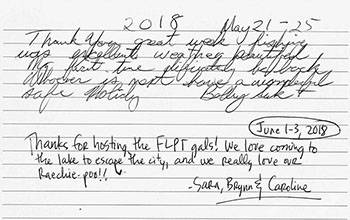 2018 May 21-25
Thank You great week fishing
was excellent weather beautiful
My first time definitely be back
Whoever is next have a wonderful
safe Holiday
June 1-3, 2018
Thanks for hosting the FLPT gals! We love coming to
the lake to escape the city, and we really love our
Raechie-poo!!
-Sara, Brynn & Caroline